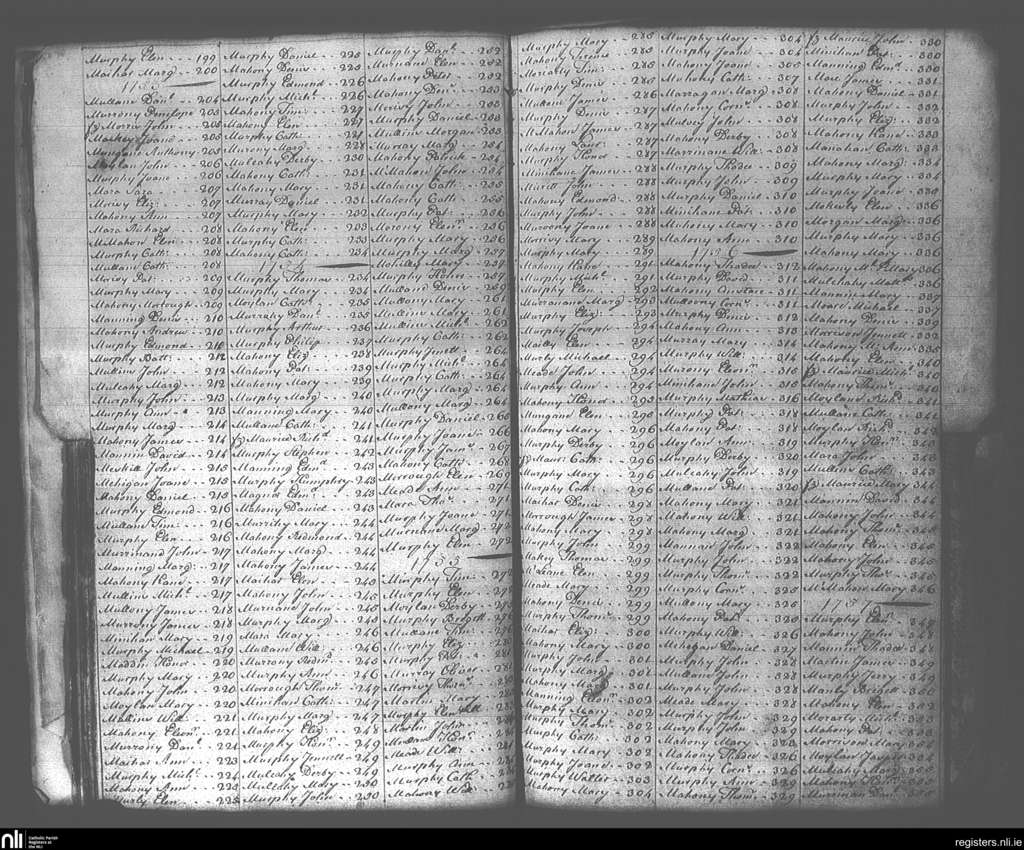 Murphy Elen 199
Maihar Marg 200
1753
Mullane Dan.l 204
Murrony Penelope 205
Morris John 205
Mackey Joane 205
Mungane Anthony 205
Moylan John 206
Murphy Joane 206
Mara Sara 207
Morvy Eliz: 207
Mahony Ann 207
Mara Richard 208
McMahon Elen 208
Murphy Cath: 208
Mullane Cath: 208
Morvy Pat: 209
Murphy Mary 209
Mahony Morrough 209
Manning Denis 210
Mahony Andrew 210
Murphy Edmond 210
Murphy Batt: 212
Mullins John 212
Mulcahy Marg 212
Murphy John 213
Murphy Ann 213
Murphy Marg 214
Mahony James 214
Mannin David 214
Meskill John 215
Mehigan Joane 215
Mahony Daniel 215
Murphy Edmond 216
Mullane Tim: 216
Murphy Elen 216
Murrinand John 217
Manning Marg 217
Mahony Hana 217
Mullins Mich.l 217
Mullony James 218
Murrony James 218
Minihan Mary 219
Murphy Michael 219
Maddin Honor 220
Murphy Mary 220
Mahony John 220
Moylan Mary 220
Mullins Will 221
Mahony Elen 221
Murrony Dan.l 221
Maihar Ann 223
Murphy Mich.l 224
Mahony Ann 225
Murly Elen 225
Murphy Daniel 225
Mahony Denis 225
Murphy Edmond 226
Murphy Mich.l 226
Mahony Tim: 227
Mahony Elen 227
Murphy Cath: 227
Murony Marg 228
Mulcahy Derby 230
Mahony Cath: 231
Mahony Mary 231
Murray Daniel 231
Murphy Mary 232
Mahony Elen 233
Murphy Cath: 233
Mahony Cath: 234
1754
Murphy Thomas 234
Murphy Mary 234
Moylan Cath: 235
Murrahy Dan.l 235
Murphy Arthur 236
Murphy Philip 237
Mahony Eliz 238
Mahony Pat: 239
Mahony Mary 239
Murphy Marg 240
Manning Mary 240
Mullane Cath: 241
fz Maurice Rich.d 241
Murphy Stephen 242
Manning Edm.d 243
Murphy Humphry 243
Magner Edm.d 243
Mahony Daniel 243
Murrihy Mary 244
Mahony Redmond 244
Mahony Marg 244
Mahony James 244
Maihar Elen 245
Mahony John 245
Murnane John 245
Murphy Marg 245
Mara Mary 246
Mullane Will: 246
Murrony Redm.d 246
Murphy Ann 246
Morrough Thom.s 247
Minihan Cath: 247
Murphy Marg 247
Mahony Eliz 248
Murphy Hon.r 249
Murphy Jennett 249
Mulcahy Derby 249
Mulcahy Mary 250
Murphy John 250
Murphy Dan.l 252
Murnane Elen 252
Mahony Peter 252
Mahony Den.s 253
Morvy John 253
Murphy Daniel 253
Mullins Morgan 253
Murray Marg 254
Mahony Patrick 254
McMahon John 254
Mahony Cath: 255
Mahony Cath: 255
Murphy Pat: 256
Morony Elen 256
Murphy Mary 256
Murphy Marg 256
Murphy Honor 257
Mullane Denis 259
Mullony Mary 261
Mullins Mary 261
Mullins Mich.l 262
Mahony Cath: 262
Murphy Jenett 264
Murphy Mich.l 264
Murphy Cath: 264
Murphy Marg 264
Mullony Marg 264
Murphy Daniel 265
Murphy Joane 266
Murphy Jam.s 267
Mahony Cath: 268
Morrough Elen 269
Meade Ann 271
Mara Tho.s 271
Murphy Joane 271
Murnane Marg 272
Murphy Elen 272
1755
Murphy Tim:
Murphy Elen
Moylan Derby
Murphy Bregitt
Mullane Tim:
Murphy Eliz
Murphy
Murray
Morrivy Thom.s
Martin Mary
Murphy Elen
Martin John
Meade Will:
Murphy Ann
Murphy Cath:
Mahony Will:
Murphy Mary 285
Mahony Terence 285
Moriarty Tim: 285
Murphy Denis 285
Mullane James 286
Murphy Denis 287
McMahon James 287
Mahony Lau: 287
Murphy Honor 288
Minihane James 288
Murett John 288
Mahony Edmond 288
Murphy John 288
Muroony Joane 288
Morrivy Mary 289
Murphy Mary 289
Mahony Hano 291
Murphy Mich.l 291
Murphy Elen 292
Murranane Marg 293
Murphy Eliz 293
Murphy Joseph 294
Maihy Elen 294
Murly Michael 294
Meade John 294
Murphy Ann 294
Mahony Honor 295
Mungane Elen 295
Mahony Mary 296
Murphy Derby 296
fz Mauri: Cath: 296
Murphy Mary 296
Murphy Cath: 296
Maihar Denis 298
Morrough James 298
Mahony Mary 298
Murphy John 299
Makey Thomas 299
McLeane Elen 299
Meade Mary 299
Mahony Denis 299
Murphy Thom.s 299
Maihar Eliz 300
Mahony Mary 300
Murphy John 301
Murphy Marg 301
Mahony John 301
Manning Elen 302
Murphy Mary 302
Murphy Thom.s 302
Murphy Cath: 302
Murphy Mary 302
Murphy Joane 302
Murphy Walter 303
Mahony Mary 304
Murphy Mary 304
Murphy Joane 304
Mahony Joane 305
Mahony Cath: 307
Marragan Marg 308
Mahony Corn.s 308
Mulvey John 308
Mahony Derby 308
Marrinane Will: 308
Murphy Thadee 309
Murphy John 309
Murphy Daniel 310
Minihane Pat: 310
Mahony Mary 310
Mahony Ann 310
1756
Mahony Thadee 312
Murphy David 311
Mahony Anstace 311
Mullowny Corn.s 311
Murphy Denis 312
Mahony Ann 313
Murray Mary 314
Murphy Will: 314
Murony Elen 315
Minihane John 315
Murphy Mathias 316
Murphy Pat: 318
Mahony Pat: 318
Moylan Ann 319
Murphy Derby 320
Mulcahy John 319
Mullane Pat: 320
Mahony Mary 321
Mahony Will: 321
Mahony Mary 321
Mannan John 322
Murphy John 322
Murphy Thom.s 322
Murphy Corn.s 325
Mullony Mary 325
Mahony Pat: 320
Murphy Will: 326
Mehegan Daniel 327
Murphy John 328
Mullane John 328
Murphy John 328
Meade Mary 328
Murphy John 329
Mahony Mary 325
Mahony Thadee 326
Murphy Corn.s 326
Murphy Ann 329
Mahony Thom.s 329
fz Maurice John 330
Minihan Pat: 330
Manning Edm.d 330
Moe James 331
Mahony Daniel 331
Murphy John 332
Murphy Eliz 332
Mahony Hana 333
Manahan Cath: 333
Mahony Marg: 334
Murphy Mary 334
Murphy Joane 335
Mahony Elen 336
Morgan Marg: 336
Murphy Mary 336
Mahony Mary 336
Mulchahy Math.w 336
Mannin Mary 337
Meard Michael 339
Mahony Denis 339
Morrison Jennett 332
Mahony Mc Ann 335
Mahony Elen 340
fz Maurice Mich.l 340
Mahony Thom.s 340
Moylane Rich.d 341
Mullane Cath: 341
Moylan Rich.d 342
Murphy Hon.r 343
Mara John 343
Mullins Cath: 343
fz Maurice Mary 344
Mannin David 344
Mahony John 344
Mahony Thom.s 345
Mahony Elen 345
Mahony John 345
Murphy Tho.s 345
McMahon Mary 346
1757
Murphy Elen 348
Mahony John 348
Mannin Thadee 348
Martin James 349
Murphy Jerry 349
Manly Bregett 350
Mahony Elen
Moriarty Mich.l
Mahony Pat:
Morrison Mary
Moylan Jasper
Mulcahy Mary
Mahony
Murrinan Dan.l
nli
Catholic Parish
Registers at
the NLI
registers.nli.ie